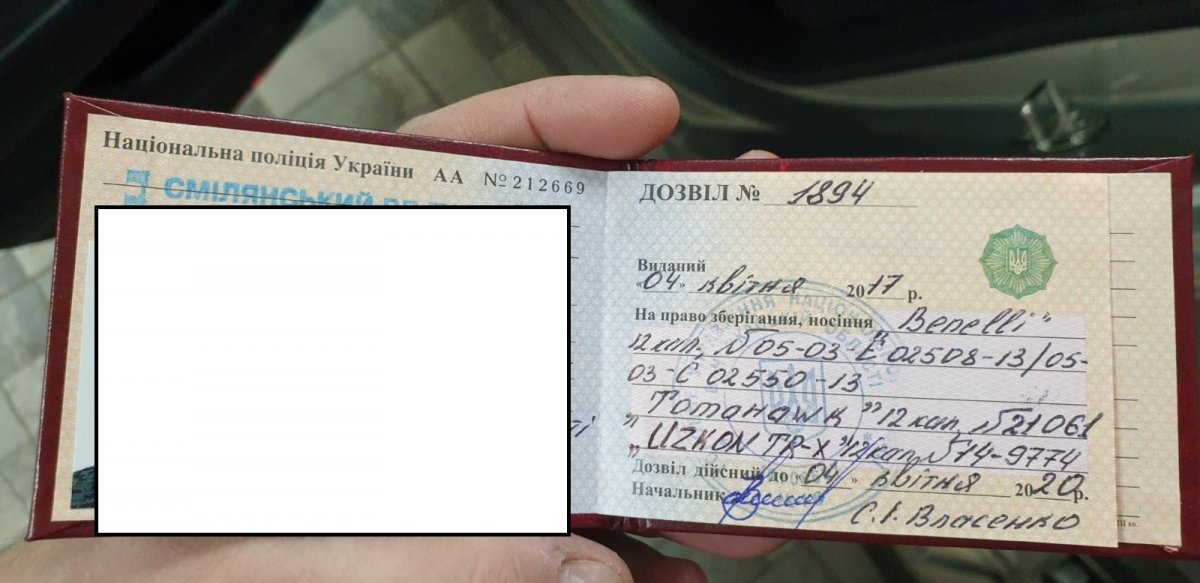 Національна поліція України АА №212669
СМІЛЯНСЬКИЙ
ДОЗВІЛ № 1894
Виданий
«04» квітня 2017 р.
На право зберігання, носіння „Benelli"
12 кал, №05-03-С 02508-13/05-
03-С 02550-13
„Томанаwк" 12 кал, №21061
„UZKON TR-X" 12 кал, №14-9774
Дозвіл дійсний до «04» квітня 2020р.
Начальник
С.І. Власенко